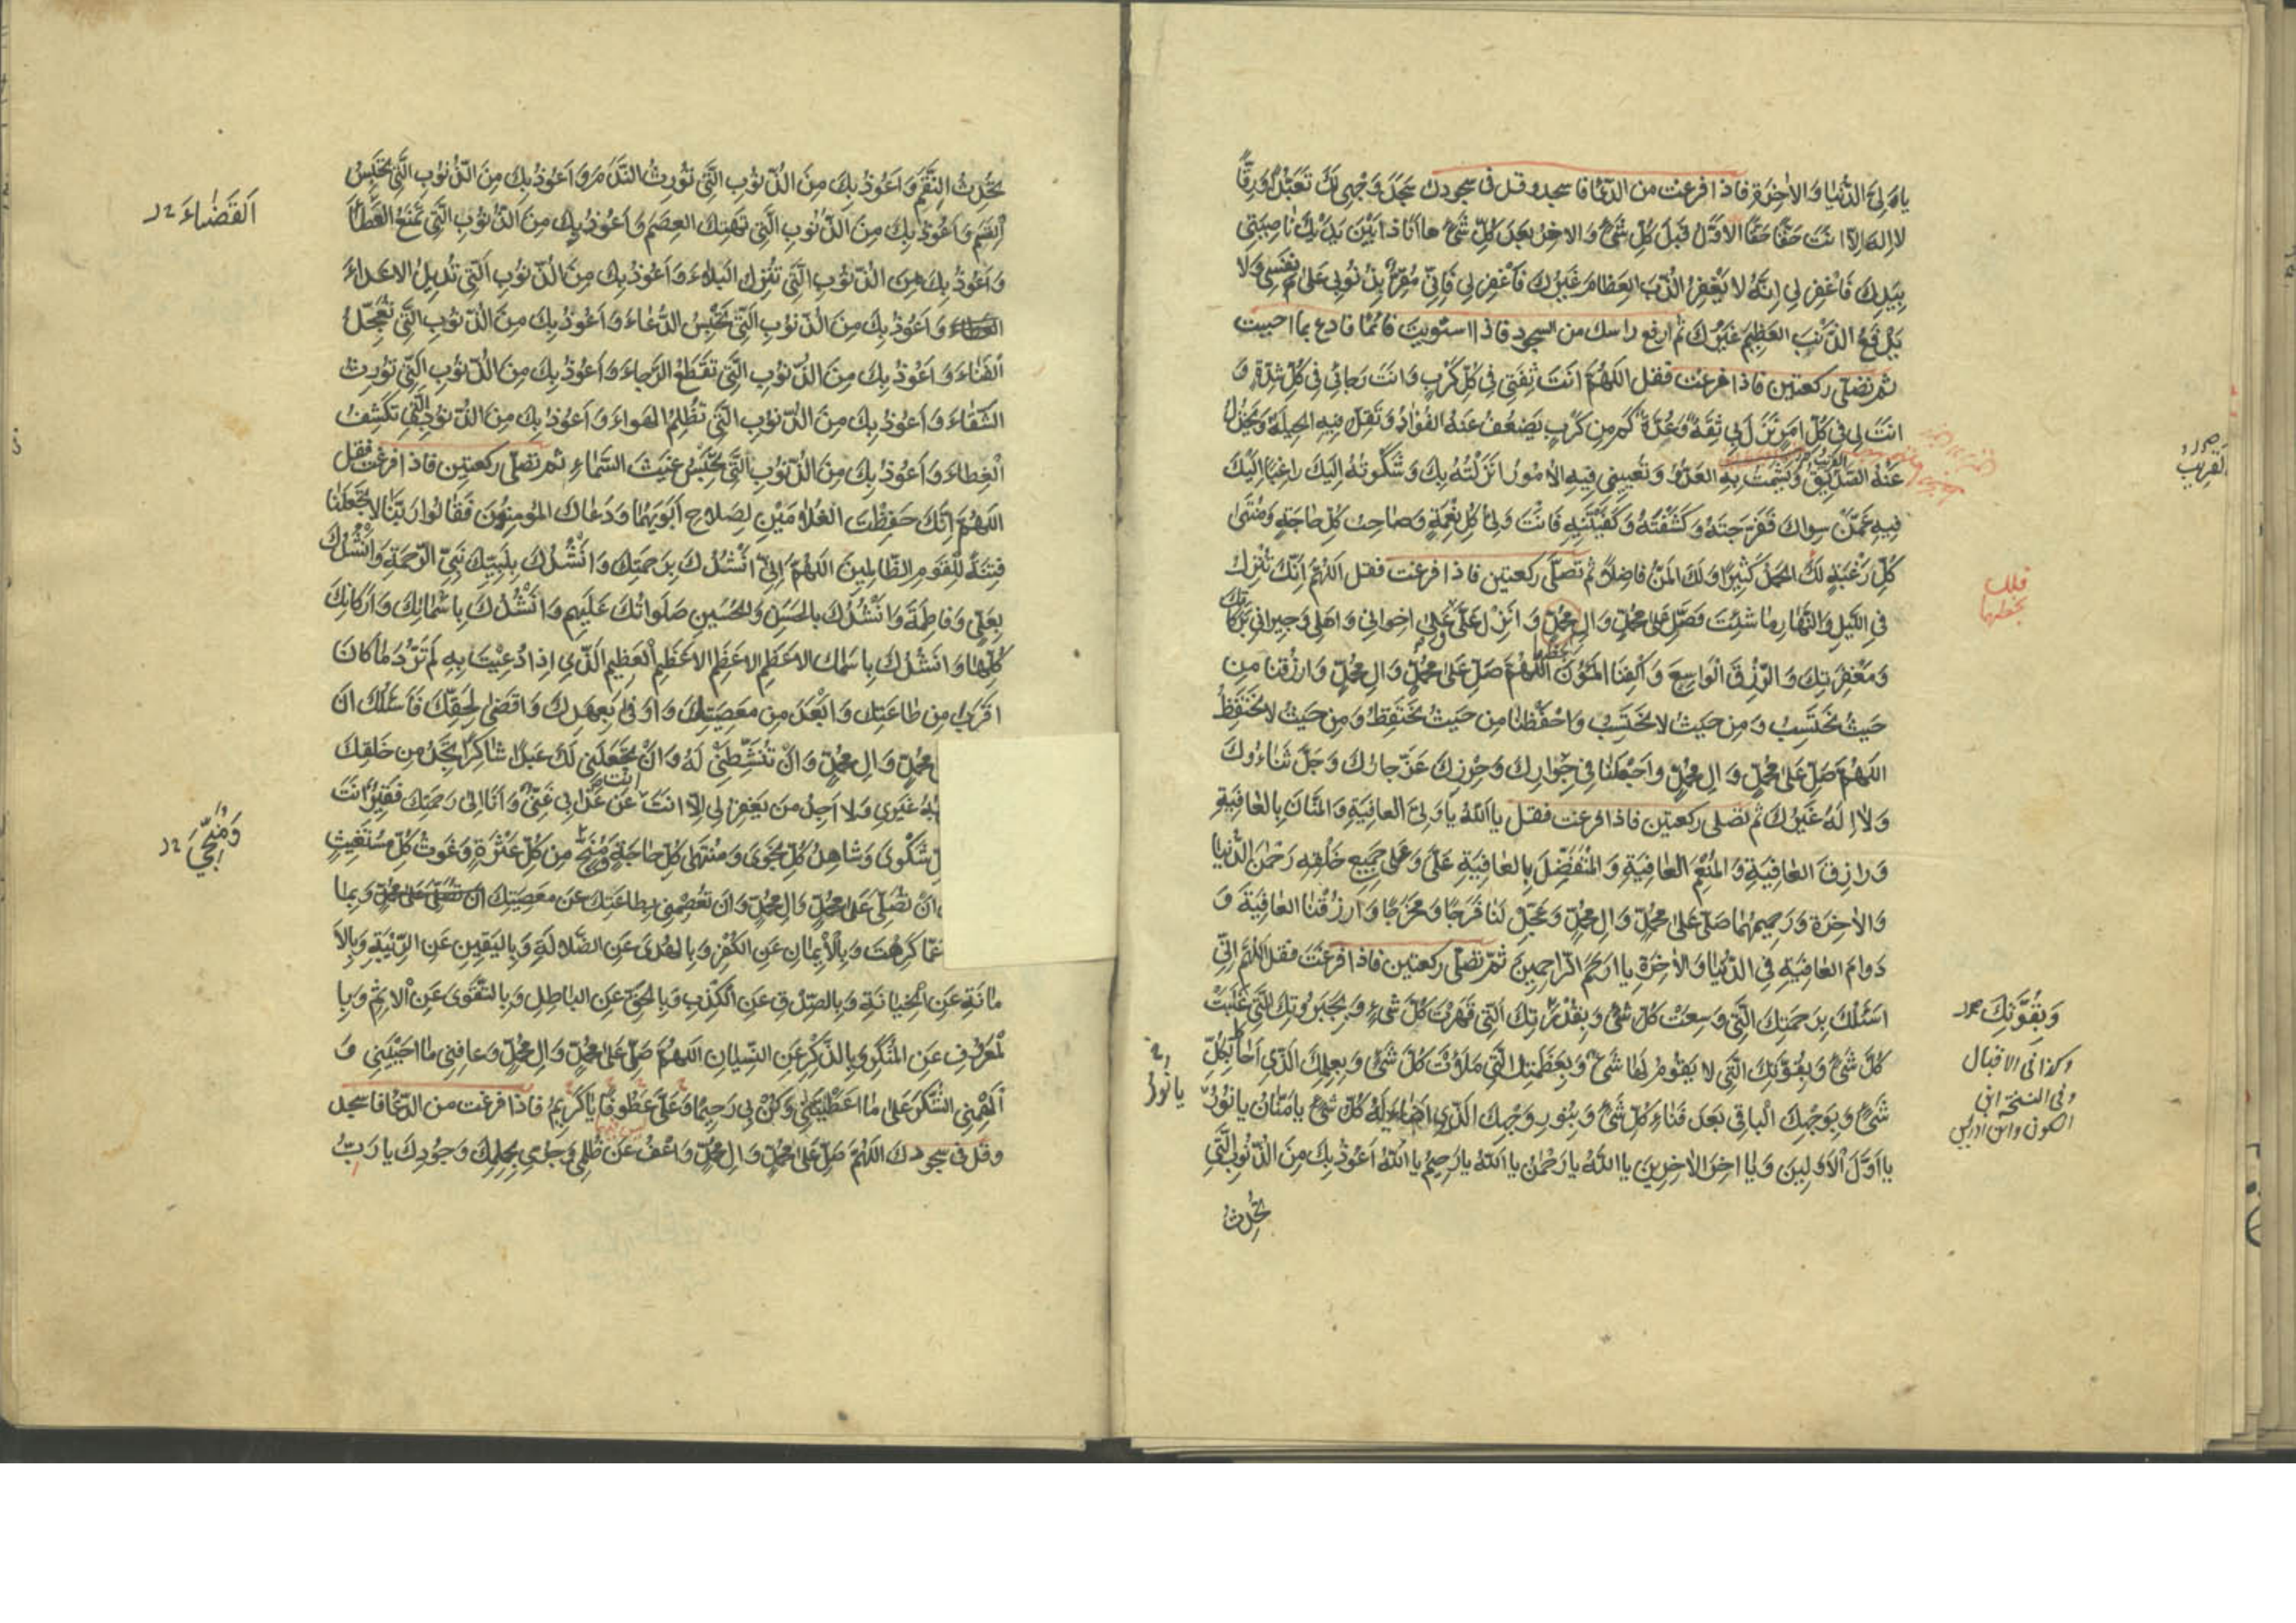 يا وَلِيَّ الدُّنْيا وَالاخِرَةِ فاذا فرغت من الدّعا فاسجد وقل فى سجودك سَجَدَ وَجْهِي لَكَ تَعَبُّدًا وَرِقًّا
لا اِلهَ اِلاّ اَنْتَ حَقًّا حَقًّا الاَوَّلُ قَبْلَ كُلِّ شَيْءٍ وَالاخِرُ بَعْدَ كُلِّ شَيْءٍ ها اَنَا ذا بَيْنَ يَدَيْكَ ناصِيَتِي
بِيَدِكَ فَاغْفِرْ لِي اِنَّهُ لا يَغْفِرُ الذَّنْبَ العِظامَ غَيْرُكَ فَاغْفِرْ لِي فَاِنِّي مُقِرٌّ بِذُنُوبِي عَلىٰ نَفْسِي وَلا
يَدْفَعُ الذَّنْبَ العَظِيمَ غَيْرُكَ ثم ارفع راسك من السجود فاذا استويت قائمًا فادع بما احببت
ثم تصلّى ركعتين فاذا فرغت فقل اَللّهُمَّ اَنْتَ ثِقَتِي فِي كُلِّ كَرْبٍ وَاَنْتَ رَجائِي فِي كُلِّ شِدَّةٍ وَ
اَنْتَ لِي فِي كُلِّ اَمْرٍ نَزَلَ بِي ثِقَةٌ وَعُدَّةٌ كَمْ مِنْ كَرْبٍ يَضْعُفُ عَنْهُ الفُؤادُ وَتَقِلُّ فِيهِ الحِيلَةُ وَيَخْذُلُ
عَنْهُ الصَّدِيقُ وَيَشْمَتُ بِهِ العَدُوُّ وَتُعْيِينِي فِيهِ الاُمُورُ اَنْزَلْتُهُ بِكَ وَشَكَوْتُهُ اِلَيْكَ راغِبًا اِلَيْكَ
فِيهِ عَمَّنْ سِواكَ فَفَرَّجْتَهُ وَكَشَفْتَهُ وَكَفَيْتَنِيهِ فَاَنْتَ وَلِيُّ كُلِّ نِعْمَةٍ وَصاحِبُ كُلِّ حاجَةٍ وَمُنْتَهىٰ
كُلِّ رَغْبَةٍ لَكَ الحَمْدُ كَثِيرًا وَلَكَ المَنُّ فاضِلاً ثم تصلّى ركعتين فاذا فرغت فقل اَللّهُمَّ اِنَّكَ تُنْزِلُ
فِي اللَّيْلِ وَالنَّهارِ ما شِئْتَ فَصَلِّ عَلىٰ مُحَمَّدٍ وَالِ مُحَمَّدٍ وَاَنْزِلْ عَلَيَّ وَعَلىٰ اِخْوانِي وَاَهْلِي وَجِيرانِي بَرَكاتِكَ
وَمَغْفِرَتِكَ وَالرِّزْقَ الْواسِعَ وَاكْفِنَا المُؤَنَ اَللّهُمَّ صَلِّ عَلىٰ مُحَمَّدٍ وَالِ مُحَمَّدٍ وَارْزُقْنا مِنْ
حَيْثُ نَحْتَسِبُ وَمِنْ حَيْثُ لا نَحْتَسِبُ وَاحْفَظْنا مِنْ حَيْثُ نَحْتَفِظُ وَمِنْ حَيْثُ لا نَحْتَفِظُ
اَللّهُمَّ صَلِّ عَلىٰ مُحَمَّدٍ وَالِ مُحَمَّدٍ وَاجْعَلْنا فِي جِوارِكَ وَحِرْزِكَ عَزَّ جارُكَ وَجَلَّ ثَناؤُكَ
وَلا اِلهَ غَيْرُكَ ثم تصلّى ركعتين فاذا فرغت فقل يا اَللهُ يا وَلِيَّ العافِيَةِ وَالمَنّانَ بِالعافِيَةِ
وَرازِقَ العافِيَةِ وَالمُنْعِمَ العافِيَةِ وَالمُتَفَضِّلَ بِالعافِيَةِ عَلَيَّ وَعَلىٰ جَمِيعِ خَلْقِهِ رَحْمٰنَ الدُّنْيا
وَالاخِرَةِ وَرَحِيمَهُما صَلِّ عَلىٰ مُحَمَّدٍ وَالِ مُحَمَّدٍ وَعَجِّلْ لَنا فَرَجًا وَمَخْرَجًا وَارْزُقْنَا العافِيَةَ وَ
دَوامَ العافِيَةِ فِي الدُّنْيا وَالاخِرَةِ يا اَرْحَمَ الرّاحِمِينَ ثمّ تصلّى ركعتين فاذا فرغت فقل اَللّهُمَّ اِنِّي
اَسْئَلُكَ بِرَحْمَتِكَ الَّتِي وَسِعَتْ كُلَّ شَيْءٍ وَبِقُدْرَتِكَ الَّتِي قَهَرَتْ كُلَّ شَيْءٍ وَبِجَبَرُوتِكَ الَّتِي غَلَبَتْ
كُلَّ شَيْءٍ وَبِقُوَّتِكَ الَّتِي لا يَقُومُ لَها شَيْءٌ وَبِعَظَمَتِكَ الَّتِي مَلَأَتْ كُلَّ شَيْءٍ وَبِعِلْمِكَ الَّذِي اَحاطَ بِكُلِّ
شَيْءٍ وَبِوَجْهِكَ الْباقِي بَعْدَ فَناءِ كُلِّ شَيْءٍ وَبِنُورِ وَجْهِكَ الَّذِي اَضاءَ لَهُ كُلُّ شَيْءٍ يا مَنّانُ يا نُورُ
يا اَوَّلَ الاَوَّلِينَ وَيا اخِرَ الاخِرِينَ يا اَللهُ يا رَحْمٰنُ يا اَللهُ يا رَحِيمُ يا اَللهُ اَعُوذُ بِكَ مِنَ الذُّنُوبِ الَّتِي
تُحْدِثُ
القَرِيبُ
وَبِقُوَّتِكَ
وكذا فى الاقبال
وفى النسخة ابن
السكون وابن ادريس
يا نُورُ
تُحْدِثُ النِّقَمَ وَاَعُوذُ بِكَ مِنَ الذُّنُوبِ الَّتِي تُورِثُ النَّدَمَ وَاَعُوذُ بِكَ مِنَ الذُّنُوبِ الَّتِي تَحْبِسُ
الْقِسَمَ وَاَعُوذُ بِكَ مِنَ الذُّنُوبِ الَّتِي تَهْتِكُ العِصَمَ وَاَعُوذُ بِكَ مِنَ الذُّنُوبِ الَّتِي تَمْنَعُ العَطاءَ
وَاَعُوذُ بِكَ مِنَ الذُّنُوبِ الَّتِي تُنْزِلُ البَلاءَ وَاَعُوذُ بِكَ مِنَ الذُّنُوبِ الَّتِي تُدِيلُ الاَعْداءَ
وَاَعُوذُ بِكَ مِنَ الذُّنُوبِ الَّتِي تَحْبِسُ الدُّعاءَ وَاَعُوذُ بِكَ مِنَ الذُّنُوبِ الَّتِي تُعَجِّلُ
الْفَناءَ وَاَعُوذُ بِكَ مِنَ الذُّنُوبِ الَّتِي تَقْطَعُ الرَّجاءَ وَاَعُوذُ بِكَ مِنَ الذُّنُوبِ الَّتِي تُورِثُ
الشَّقاءَ وَاَعُوذُ بِكَ مِنَ الذُّنُوبِ الَّتِي تُظْلِمُ الهَواءَ وَاَعُوذُ بِكَ مِنَ الذُّنُوبِ الَّتِي تَكْشِفُ
الْغِطاءَ وَاَعُوذُ بِكَ مِنَ الذُّنُوبِ الَّتِي تَحْبِسُ غَيْثَ السَّماءِ ثم تصلّى ركعتين فاذا فرغت فقل
اَللّهُمَّ اِنَّكَ حَفِظْتَ الغُلامَيْنِ لِصَلاحِ اَبَوَيْهِما وَدَعاكَ المُؤمِنُونَ فَقالُوا رَبَّنا لا تَجْعَلْنا
فِتْنَةً لِلْقَوْمِ الظّالِمِينَ اَللّهُمَّ اِنِّي اَنْشُدُكَ بِرَحْمَتِكَ وَاَنْشُدُكَ بِنَبِيِّكَ نَبِيِّ الرَّحْمَةِ وَاَنْشُدُكَ
بِعَلِيٍّ وَفاطِمَةَ وَاَنْشُدُكَ بِالحَسَنِ وَالحُسَيْنِ صَلَواتُكَ عَلَيْهِمْ وَاَنْشُدُكَ بِاَسْمائِكَ وَاَرْكانِكَ
كُلِّها وَاَنْشُدُكَ بِاسْمِكَ الاَعْظَمِ الاَعْظَمِ الاَعْظَمِ الْعَظِيمِ الَّذِي اِذا دُعِيْتَ بِهِ لَمْ تَرُدَّ ما كانَ
اَقْرَبَ مِنْ طاعَتِكَ وَاَبْعَدَ مِنْ مَعْصِيَتِكَ وَاَوْفىٰ بِعَهْدِكَ وَاَقْضىٰ لِحَقِّكَ فَاَسْئَلُكَ اَنْ
مُحَمَّدٍ وَالِ مُحَمَّدٍ وَاَنْ تُنَشِّطَنِي لَهُ وَاَنْ تَجْعَلَنِي لَكَ عَبْدًا شاكِرًا تَجِدُ مِنْ خَلْقِكَ
غَيْرِي وَلا اَجِدُ مَنْ يَغْفِرُ لِي اِلاّ اَنْتَ اَنْتَ عَنْ عَذابِي غَنِيٌّ وَاَنَا اِلىٰ رَحْمَتِكَ فَقِيرٌ اَنْتَ
شَكْوىٰ وَشاهِدُ كُلِّ نَجْوىٰ وَمُنْتَهىٰ كُلِّ حاجَةٍ وَمُنْجٍ مِنْ كُلِّ عَثْرَةٍ وَغَوْثُ كُلِّ مُسْتَغِيثٍ
اَنْ تُصَلِّيَ عَلىٰ مُحَمَّدٍ وَالِ مُحَمَّدٍ وَاَنْ تَعْصِمَنِي بِطاعَتِكَ عَنْ مَعْصِيَتِكَ وَبِما
عَمّا كَرِهْتَ وَبِالْاِيمانِ عَنِ الكُفْرِ وَبِالهُدىٰ عَنِ الضَّلالَةِ وَبِاليَقِينِ عَنِ الرِّيْبَةِ وَبِالاَ
مانَةِ عَنِ الْخِيانَةِ وَبِالصِّدْقِ عَنِ الْكَذِبِ وَبِالحَقِّ عَنِ الباطِلِ وَبِالتَّقْوىٰ عَنِ الْاِثْمِ وَبِا
لْمَعْرُوفِ عَنِ المُنْكَرِ وَبِالذِّكْرِ عَنِ النِّسْيانِ اَللّهُمَّ صَلِّ عَلىٰ مُحَمَّدٍ وَالِ مُحَمَّدٍ وَعافِنِي ما اَحْيَيْتَنِي وَ
اَلْهِمْنِي الشُّكْرَ عَلىٰ ما اَعْطَيْتَنِي وَكُنْ بِي رَحِيمًا وَعَلَيَّ عَطُوفًا يا كَرِيمُ فاذا فرغت من الدّعا فاسجد
وقل فى سجودك اَللّهُمَّ صَلِّ عَلىٰ مُحَمَّدٍ وَالِ مُحَمَّدٍ وَاعْفُ عَنْ ظُلْمِي وَجُرْمِي بِحِلْمِكَ وَجُودِكَ يا رَبِّ
اَلقَضاءَ
وَمُنْجِي